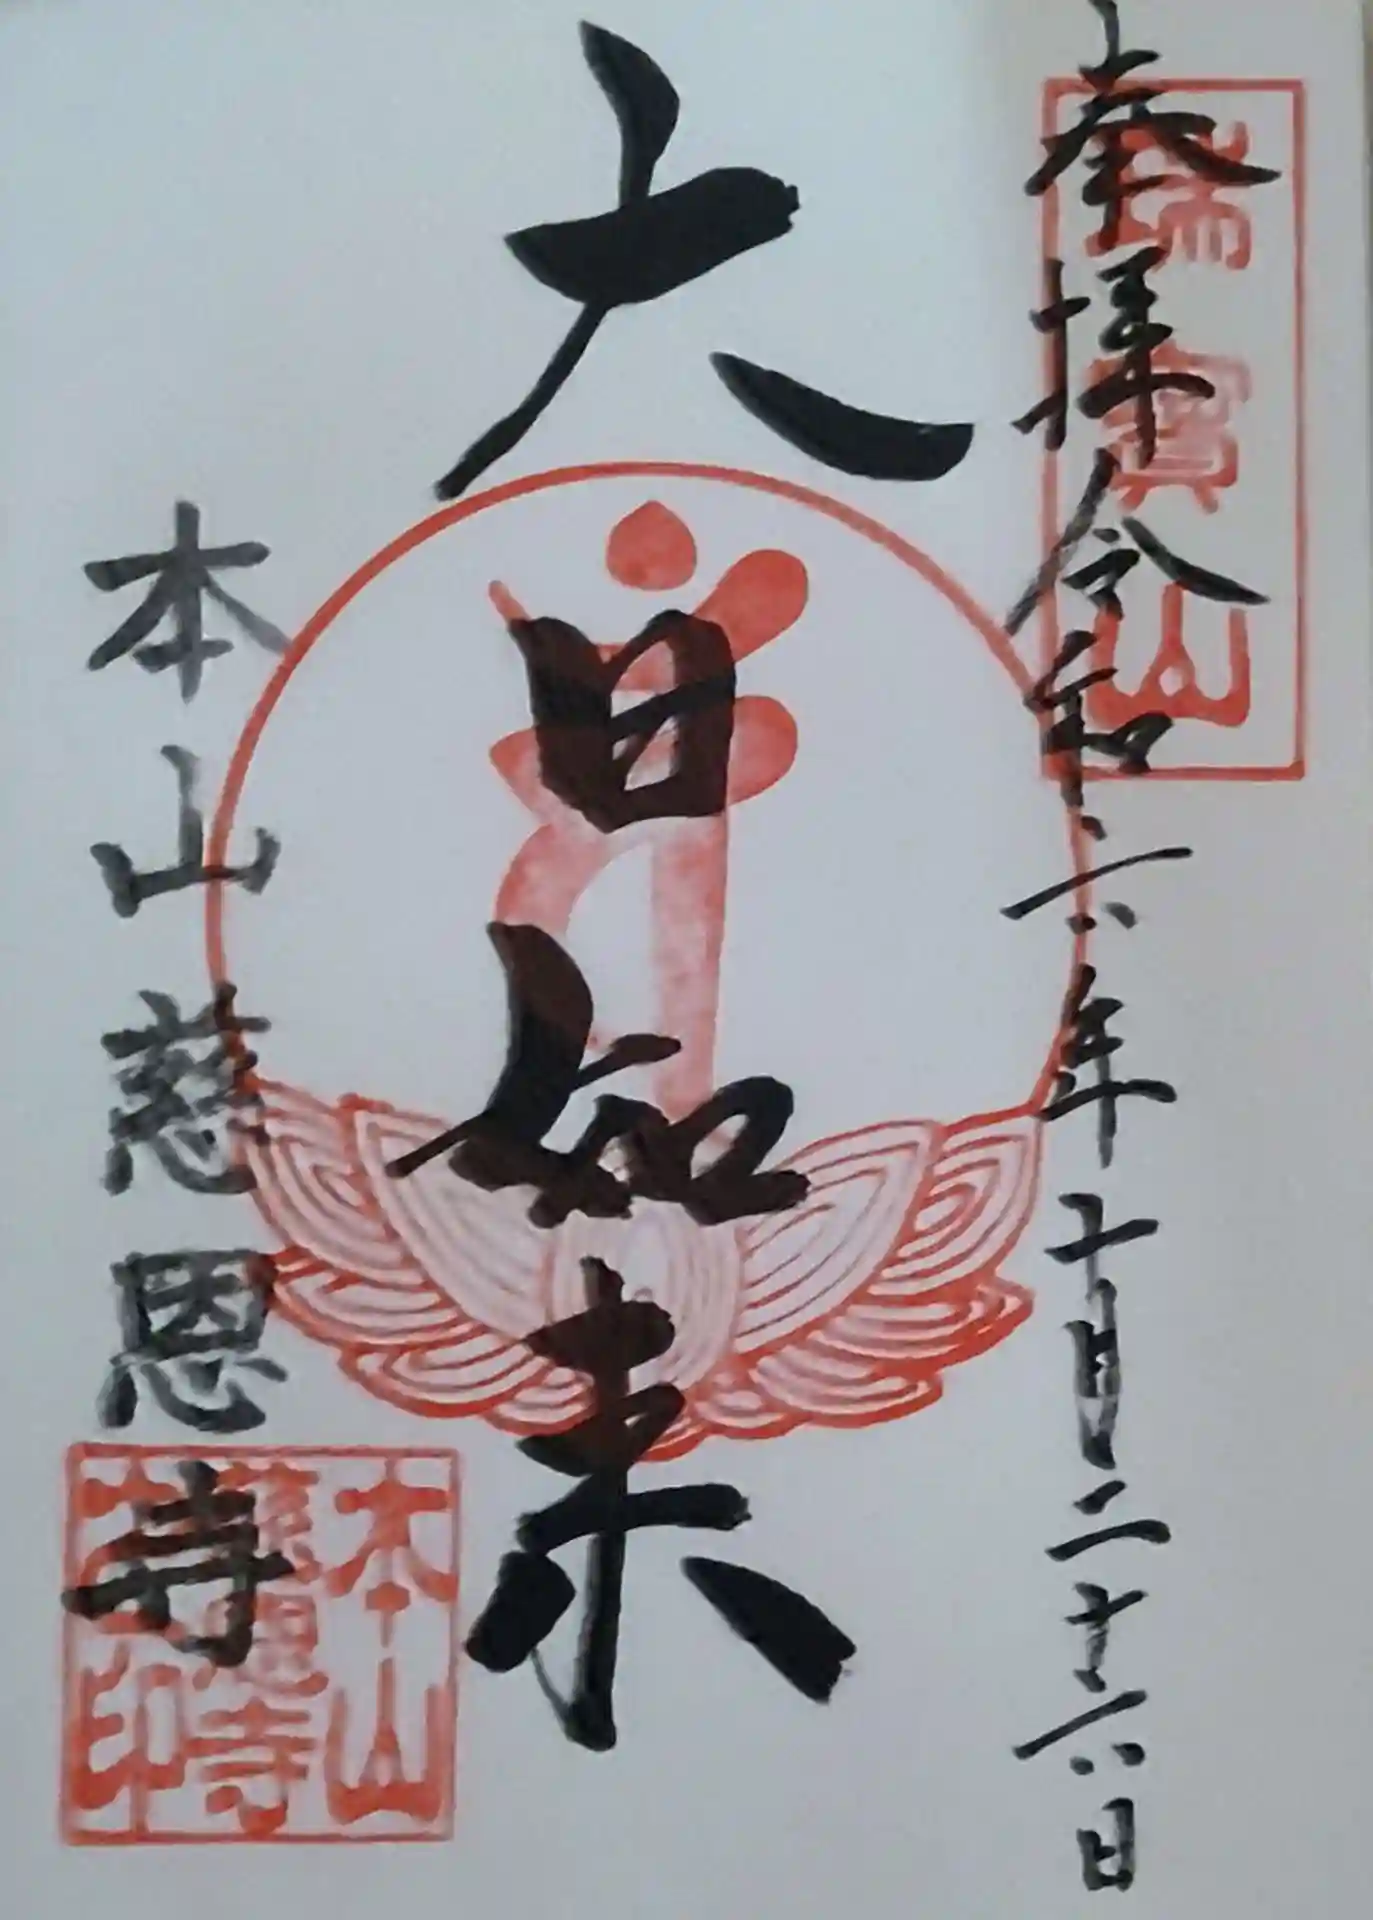 奉拝 令和六年十月二十六日
瑞寳山
大日如来
本山慈恩寺
本山
慈恩寺